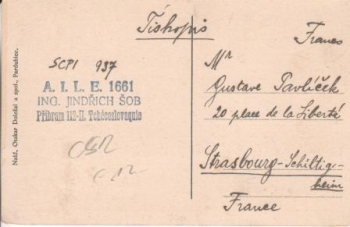 Tiskopis
Franco
SCPI 937
A. I. L. E. 1661
ING. JINDŘICH ŠOB
Příbram 113-II. Tchécoslovaquie
Mr
Gustave Pavlíček
20 place de la Liberté
Strasbourg-Schiltig-
heim
France
Nakl. Otakar Doležal a spol., Pardubice.